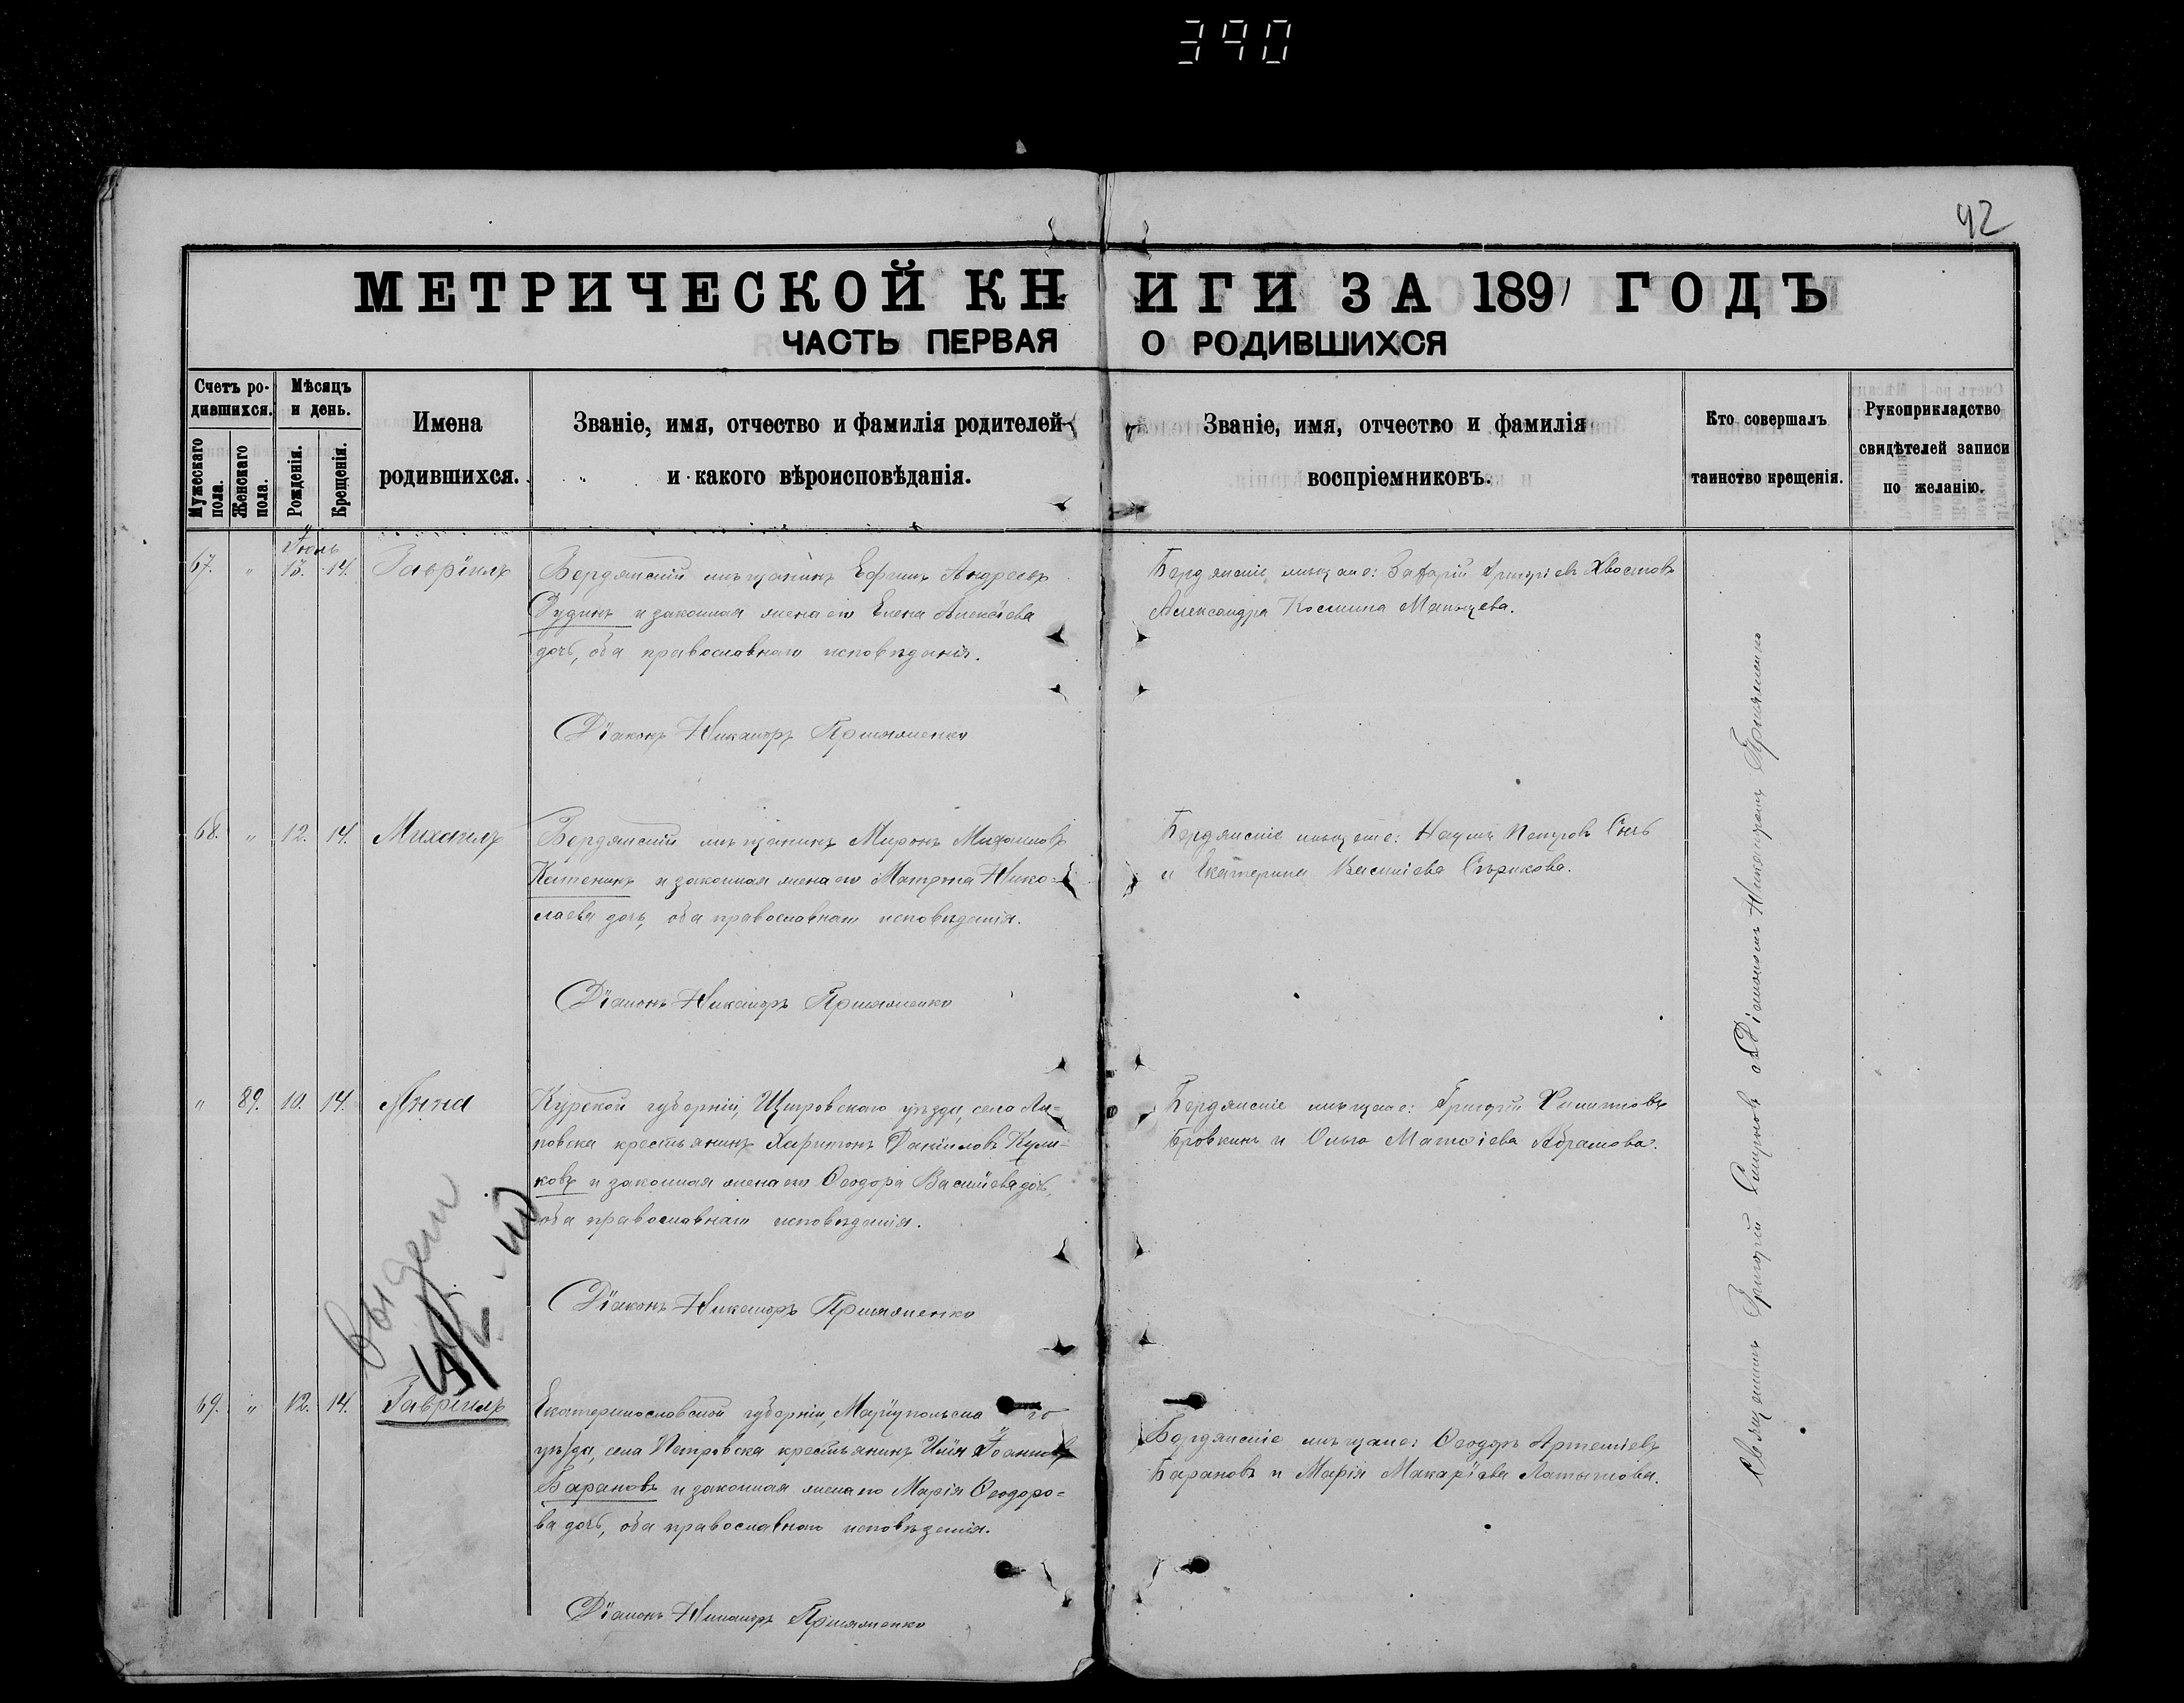 390
42
МЕТРИЧЕСКОЙ КНИГИ ЗА 1891 ГОДЪ
ЧАСТЬ ПЕРВАЯ О РОДИВШИХСЯ
Счетъ ро-
дившихся.
Мужескаго
пола.
Женскаго
пола.
Мѣсяцъ
и день.
Рожденія.
Крещенія.
Имена
родившихся.
Званіе, имя, отчество и фамилія родителей
и какого вѣроисповѣданія.
Званіе, имя, отчество и фамилія
воспріемниковъ.
Кто совершалъ
таинство крещенія.
Рукоприкладство
свидѣтелей записи
по желанію.
Іюль
67. " 13. 14. Гавріилъ
Бердянскій мѣщанинъ Ефимъ Андреевъ
Дудинъ и законная жена его Елена Алексіева
дочь, оба православнаго исповѣданія.
Діаконъ Никаноръ Пришляменко
Бердянскіе мѣщане: Захарій Григоріевъ Хвостовъ
Александра Космина Мальцева.
68. " 12. 14. Михаилъ
Бердянскій мѣщанинъ Миронъ Михаиловъ
Катенинъ и законная жена его Матрона Нико-
лаева дочь, оба православнаго исповѣданія.
Діаконъ Никаноръ
Бердянскіе мѣщане: Наумъ Петровъ
и Екатерина Василіева Сѣрикова.
" 89. 10. 14. Анна
Курской губерніи, Щигровскаго уѣзда, села Ли-
повска крестьянинъ Харитонъ Даніиловъ Кули-
ковъ и законная жена его Ѳеодора Василіева дочь,
оба православнаго исповѣданія.
Діаконъ Никаноръ
Бердянскіе мѣщане: Григорій Филипповъ
Бровкинъ и Ольга Матѳіева Абрамова.
выдан
69. " 12. 14. Гавріилъ
Екатеринославской губерніи, Маріупольскаго
уѣзда, села Петровска крестьянинъ Илія Іоанновъ
Барановъ и законная жена его Марія Ѳеодоро-
ва дочь, оба православнаго исповѣданія.
Діаконъ Никаноръ
Бердянскіе мѣщане: Ѳеодоръ Артеміевъ
Барановъ и Марія Макаріева Латышова.
Священникъ Григорій Смирновъ съ Діакономъ Никаноромъ